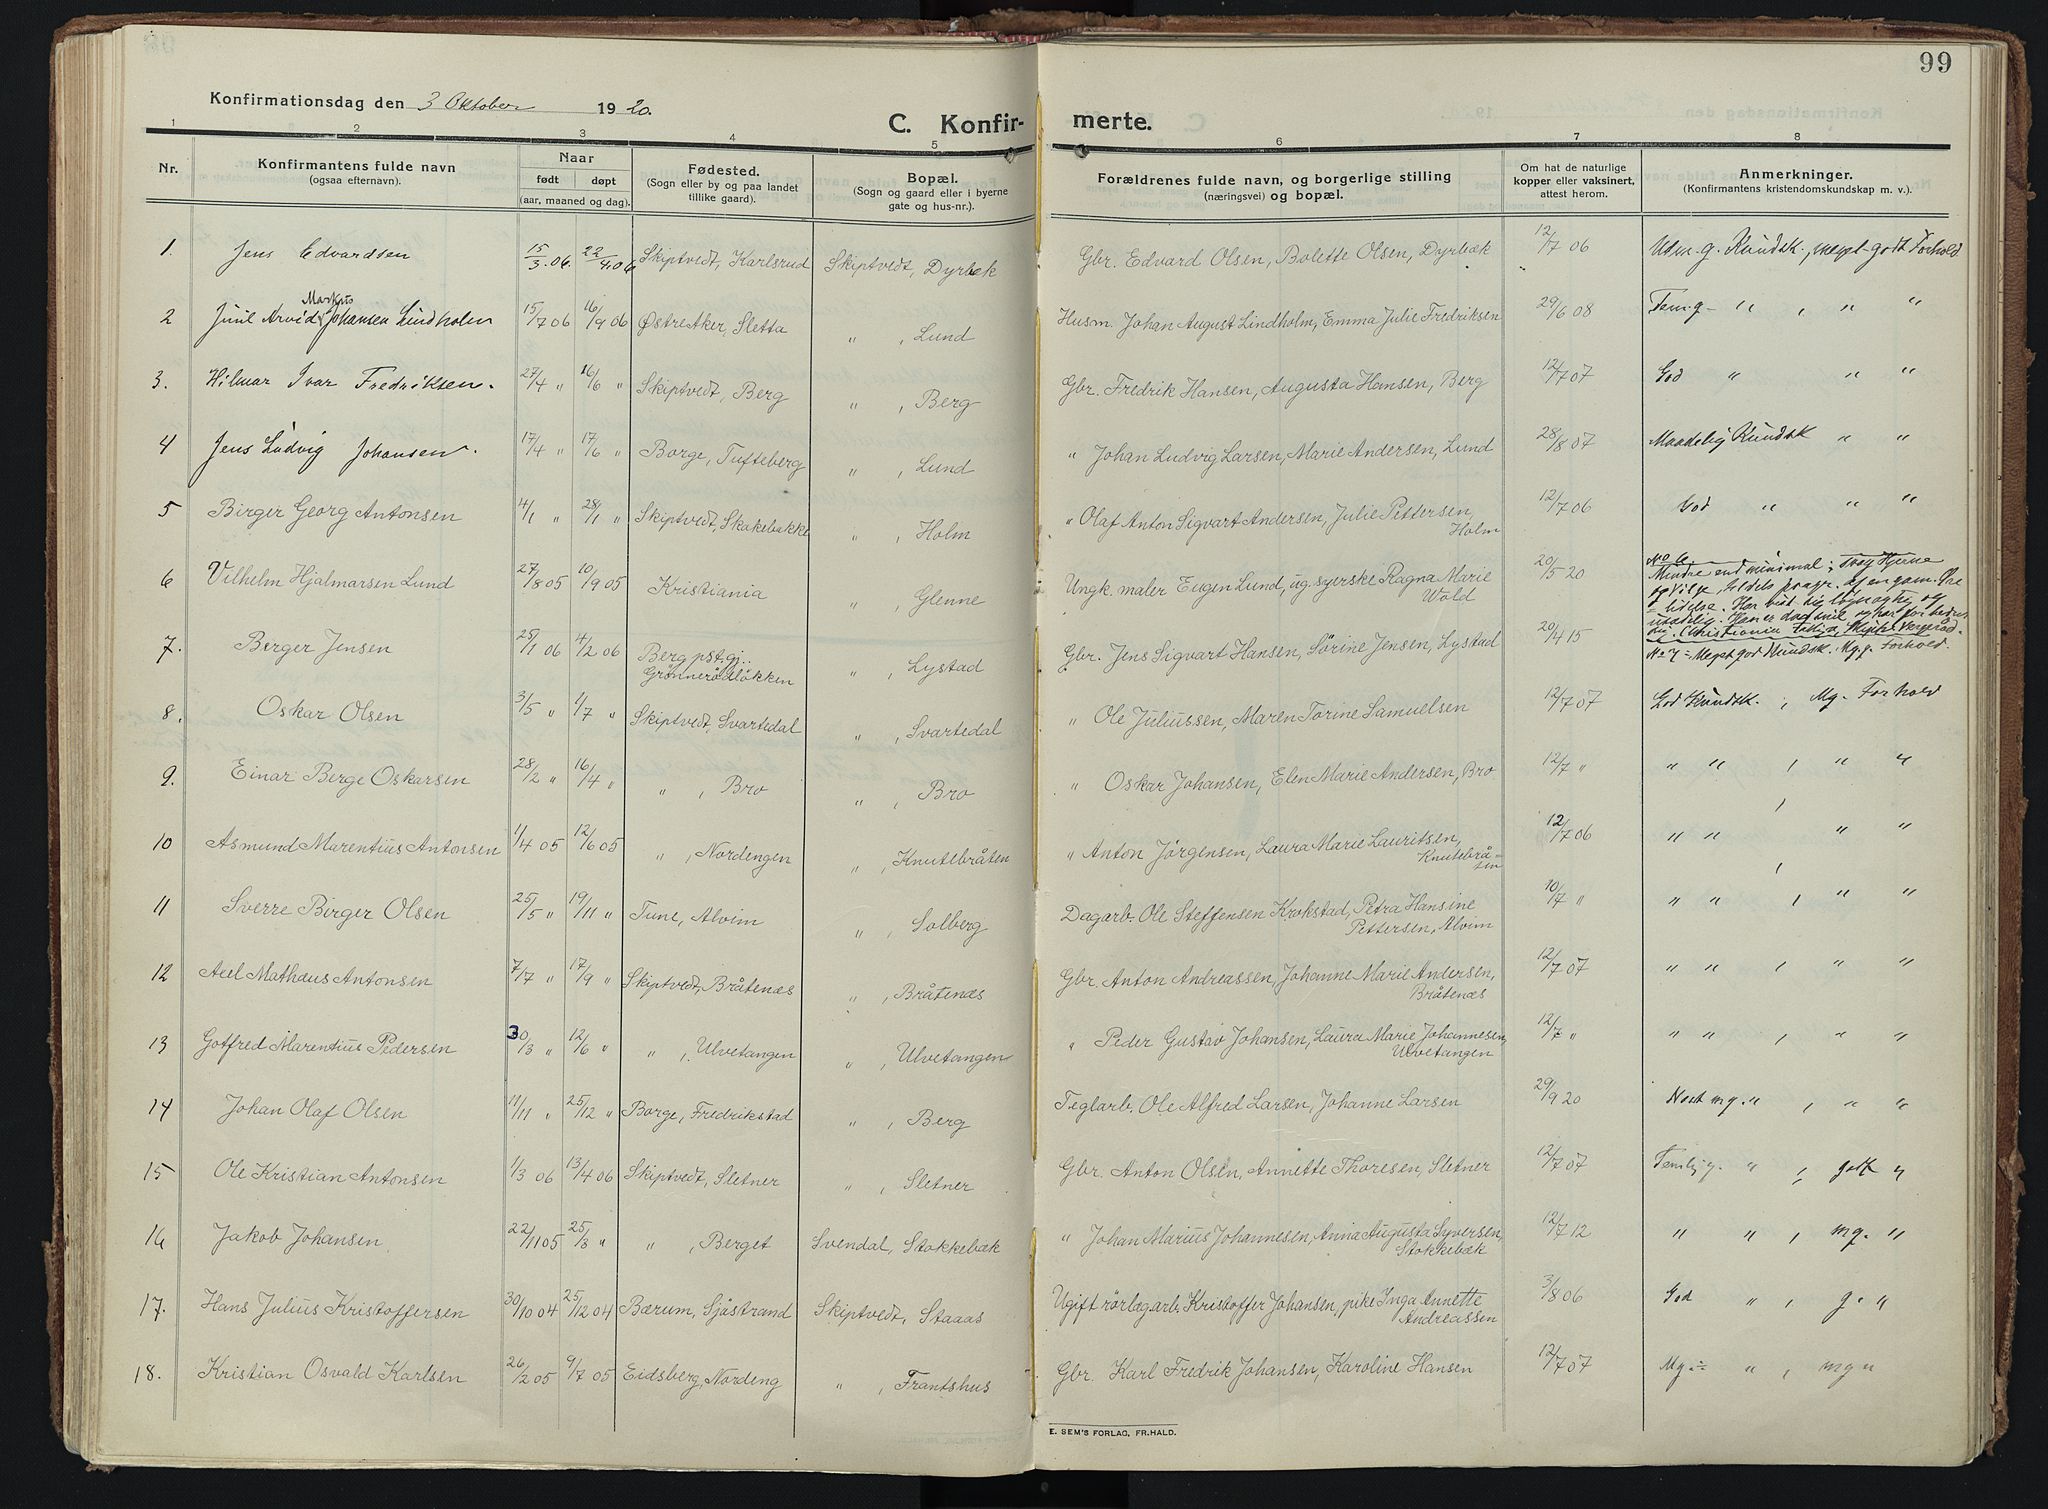 99
Konfirmationsdag den 3 Oktober 1920.
C. Konfir- merte.
1 2 3 4 5 6 7 8
Nr. Konfirmantens fulde navn (ogsaa efternavn). Naar født døpt (aar, maaned og dag). Fødested. (Sogn eller by og paa landet tillike gaard). Bopæl. (Sogn og gaard eller i byerne gate og hus-nr.). Forældrenes fulde navn, og borgerlige stilling (næringsvei) og bopæl. Om hat de naturlige kopper eller vaksinert, attest herom. Anmerkninger. (Konfirmantens kristendomskundskap m. v.).
1. Jens Edvardsen 15/3.06. 22/4.06 Skiptvedt, Karlsrud Skiptvedt, Dyrbæk Gbr. Edvard Olsen, Bolette Olsen, Dyrbæk 12/7 06 Udm. g. Kundsk., meget godt Forhold
2 Juul Arvid Markus Johansen Lindholm 15/7 06 16/9 06 Østre Aker, Sletta " , Lund Husm. Johan August Lindholm, Emma Julie Fredriksen 29/6 08 Tem. g. " , " "
3. Hilmar Ivar Fredriksen. 27/4 " 16/6 " Skiptvedt, Berg " , Berg Gbr. Fredrik Hansen, Augusta Hansen, Berg 12/7 07 God " " "
4 Jens Ludvig Johansen. 17/4 " 17/6 " Borge, Tufteberg " , Lund " Johan Ludvig Larsen, Marie Andersen, Lund 28/8 07 Maadelig Kundsk " "
5 Birger Georg Antonsen 4/1 " 28/1 " Skiptvedt, Skakebakke " , Holm " Olaf Anton Sigvart Andersen, Julie Pettersen, Holm 12/7 06 God " " "
6 Vilhelm Hjalmarsen Lund 27/8 05 10/9 05 Kristiania " , Glenne Ungk. maler Eugen Lund, ug. syerske Ragna Marie Wold 20/5 20 No 6 Mindre end minimal; Træg Hjerne
7. Berger Jensen 25/1 06 4/2 06 Berg pst.gj. Grønnerødløkken " , Lystad Gbr. Jens Sigvart Hansen, Sørine Jensen, Lystad 20/4 15 No 7 = Meget god Kundsk. Mg. g. Forhold.
8. Oskar Olsen 3/5 " 1/7 " Skiptvedt, Svartedal " , Svartedal " Ole Juliussen, Maren Torine Samuelsen 12/7 07 God Kundsk. , Mg. Forhold
9. Einar Berge Oskarsen 28/2 " 16/4 " " , Bro " , Bro " Oskar Johansen, Elen Marie Andersen, Bro 12/7 " " " , " "
10 Asmund Marentius Antonsen 1/4 05 12/6 05 " , Nordengen " , Knutebråten " Anton Jørgensen, Laura Marie Lauritsen, Knutebråten 12/7 06 " " , " "
11 Sverre Birger Olsen 25/5 " 19/11 " Tune, Alvim " , Solberg Dagarb. Ole Steffensen Krokstad, Petra Hansine Pettersen, Alvim 10/7 " " " , " "
12 Axel Mathæus Antonsen 7/7 " 17/9 " Skiptvedt, Bråtenæs " , Bråtenæs Gbr. Anton Andreassen, Johanne Marie Andersen, Bråtenæs 12/7 07 " " , " "
13 Gotfred Marentius Pedersen 30/3 " 12/6 " " , Ulvetangen " , Ulvetangen " Peder Gustav Johansen, Laura Marie Johannesen, Ulvetangen 12/7 " " " , " "
14 Johan Olaf Olsen 11/11 " 25/12 " Borge, Fredrikstad " , Berg Teglarb. Ole Alfred Larsen, Johanne Larsen 29/9 20 mg. " , " "
15 Ole Kristian Antonsen 1/3 06 13/4 06 Skiptvedt, Sletner " , Sletner Gbr. Anton Olsen, Annette Thoresen, Sletner 12/7 07 Temlig g. " , godt "
16 Jakob Johansen 22/11 05 25/3 " " , Berget Svendal, Stokkebæk " Johan Marius Johannesen, Anna Augusta Syversen, Stokkebæk 12/7 12 " " , mg. "
17. Hans Julius Kristoffersen 30/10 04 25/12 04 Bærum, Sjøstrand Skiptvedt, Staaas Ugift rørlægarb. Kristoffer Johansen, pike Inga Annette Andreassen 3/8 06 God " , g. "
18. Kristian Osvald Karlsen 26/2 05 9/7 05 Eidsberg, Nordeng " , Frantshus Gbr. Karl Fredrik Johansen, Karoline Hansen 12/7 07 Mg. " , mg "
E. SEM'S FORLAG, FR.HALD.